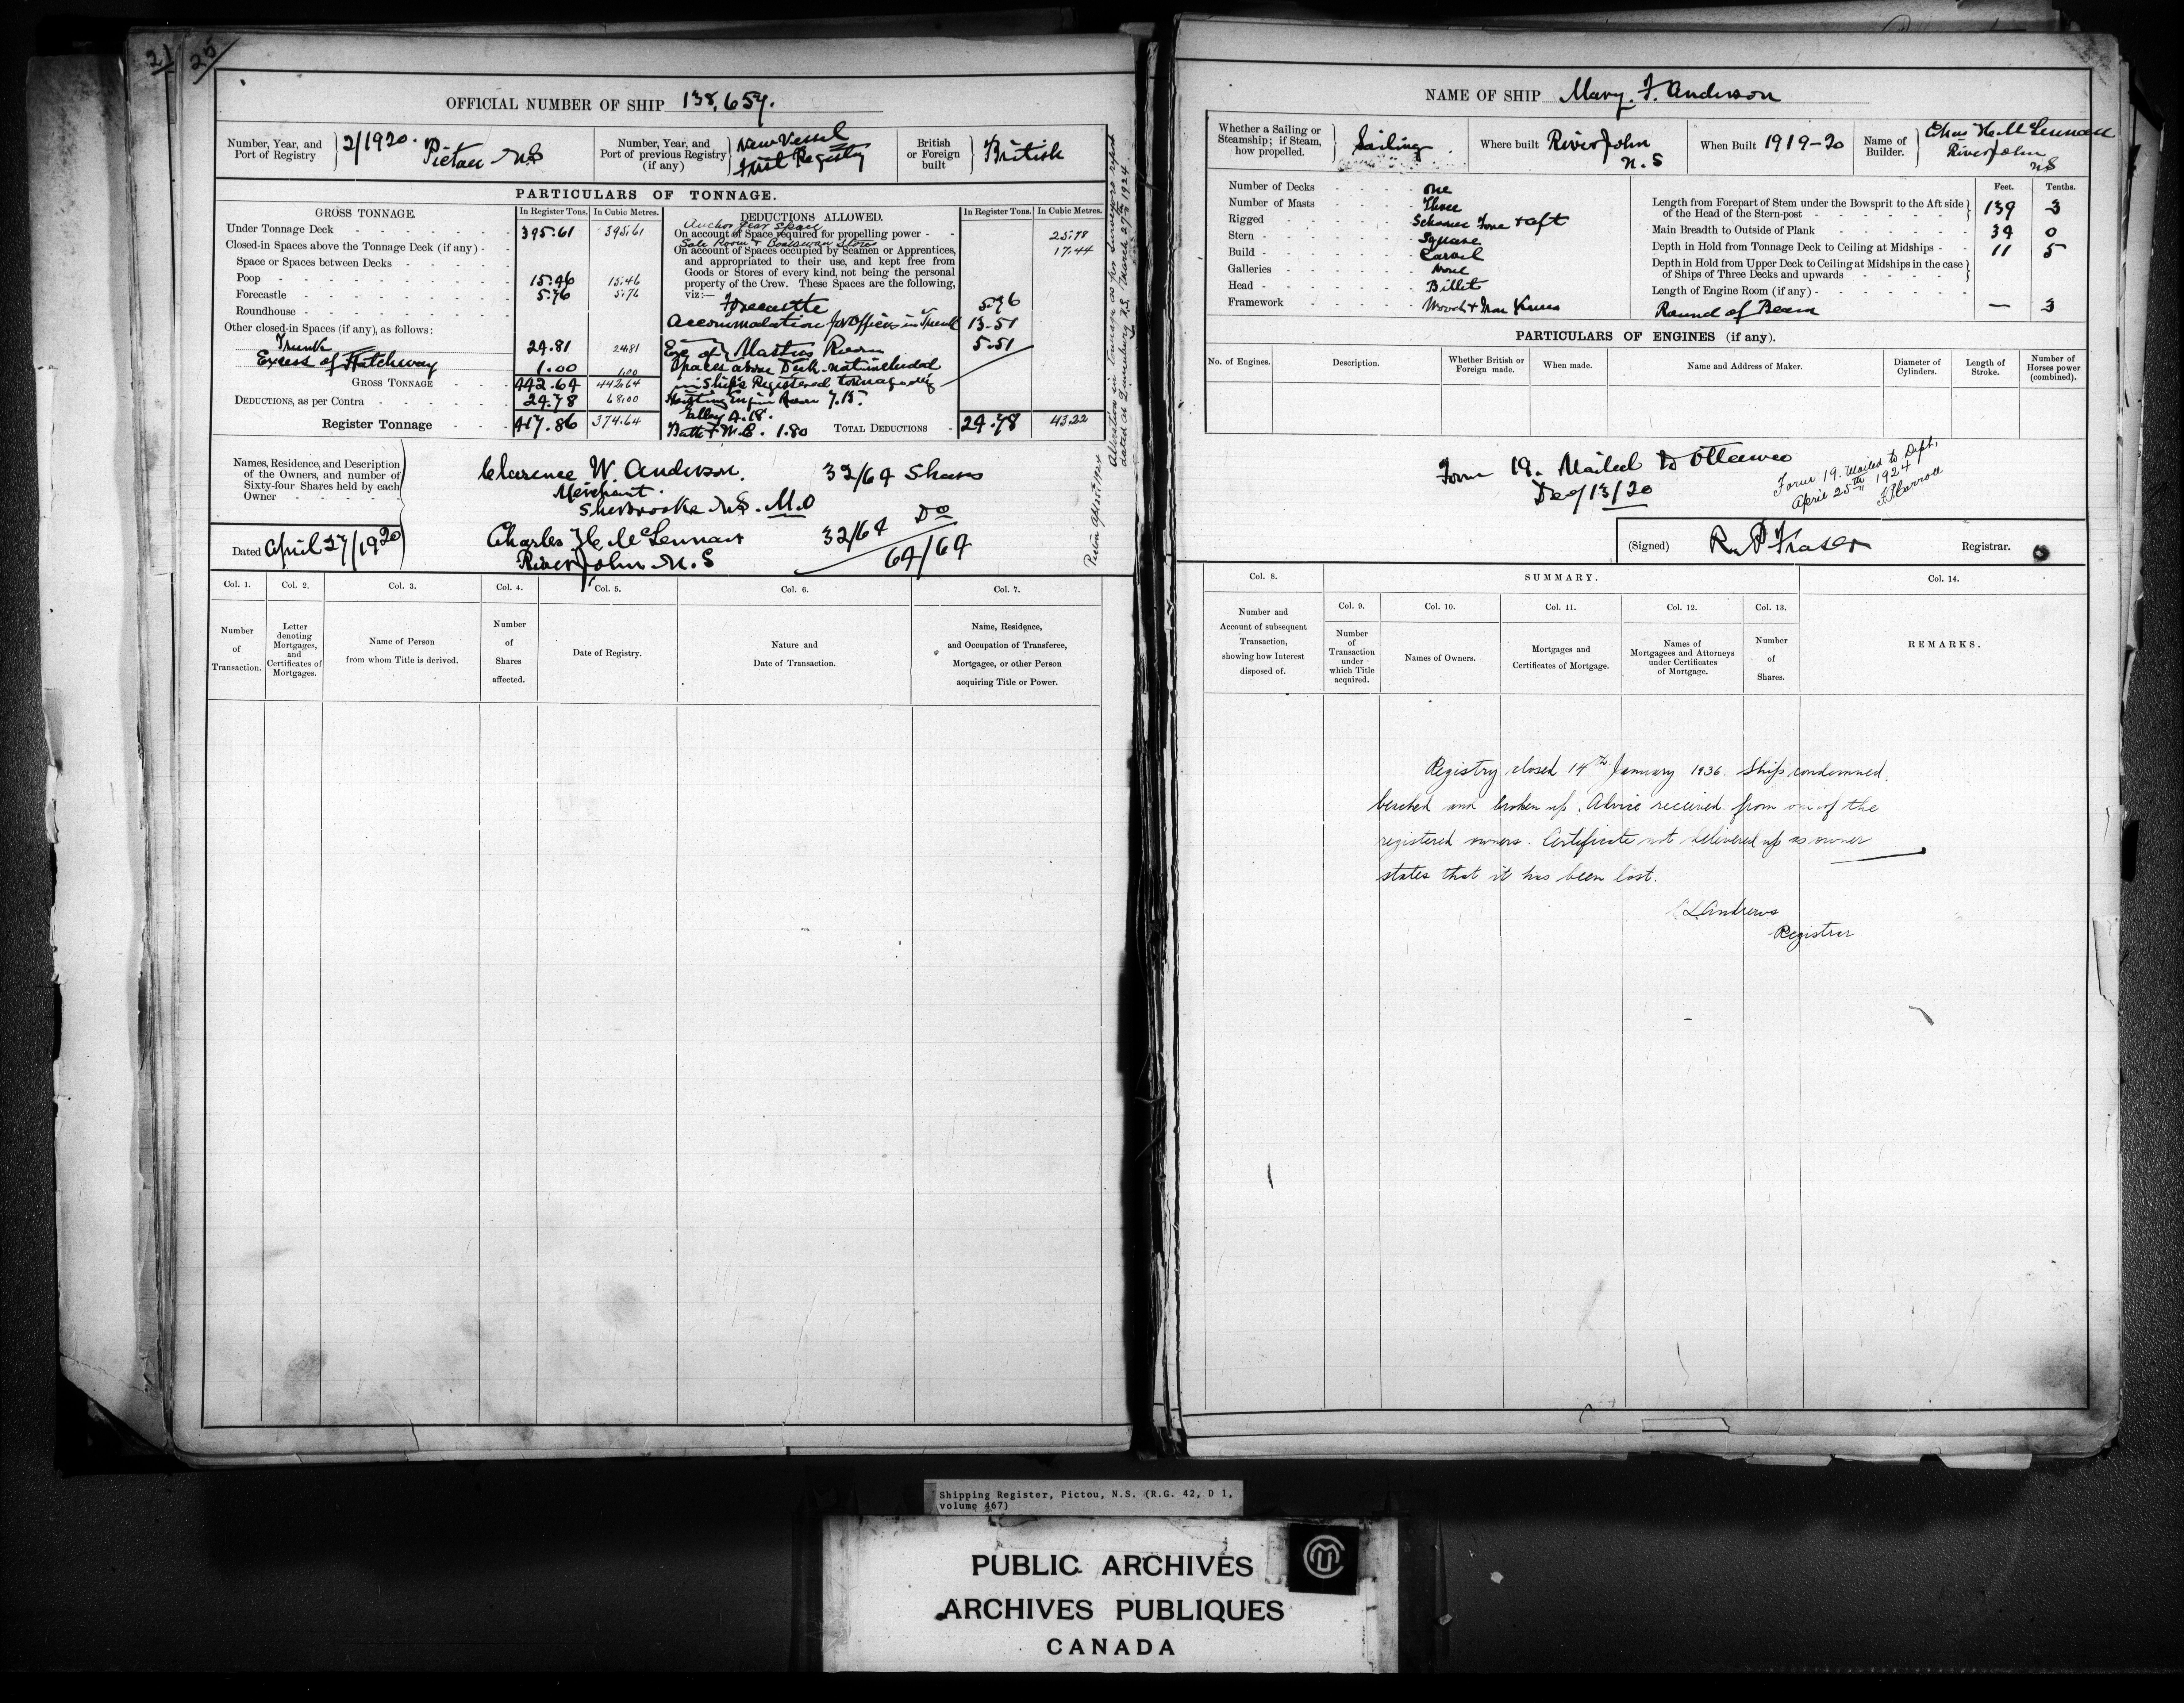 21 25
OFFICIAL NUMBER OF SHIP 138,657.
Number, Year, and Port of Registry } 2/1920. Pictou N.S
Number, Year, and Port of previous Registry (if any) { New Vessel First Registry
British or Foreign built } British
PARTICULARS OF TONNAGE.
GROSS TONNAGE. In Register Tons. In Cubic Metres.
Under Tonnage Deck 395.61 395.61
Closed-in Spaces above the Tonnage Deck (if any) -
Space or Spaces between Decks
Poop 15.46 15.46
Forecastle 5.76 5.76
Roundhouse
Other closed-in Spaces (if any), as follows:
Trunk 24.81 24.81
Excess of Hatchway 1.00 1.00
GROSS TONNAGE 442.64 442.64
DEDUCTIONS, as per Contra 24.78 68.00
Register Tonnage 417.86 374.64
DEDUCTIONS ALLOWED. In Register Tons. In Cubic Metres.
Anchor Gear Space
On account of Space required for propelling power - - 25.78
Sale Room & Boatswain Stores
On account of Spaces occupied by Seamen or Apprentices, 17.44
and appropriated to their use, and kept free from
Goods or Stores of every kind, not being the personal
property of the Crew. These Spaces are the following,
viz:—
Forecastle 5.76
Accommodation for Officers in Trunk 13.51
Masters Room 5.51
Spaces above Deck not included
in Ship's Registered tonnage viz
Hoisting Engine Room 7.15.
Galley 4.18.
Bath & W.C. 1.80 TOTAL DEDUCTIONS - 24.78 43.22
Alteration in Tonnage as per Surveyors report
dated at Lunenburg N.S. March 27th 1924
Names, Residence, and Description
of the Owners, and number of
Sixty-four Shares held by each
Owner
Clarence W. Anderson. 32/64 Shares
Merchant.
Sherbrooke N.S. M.O
Charles H. McLennan 32/64 Do
River John N.S 64/64
Dated April 27/1920
Col. 1. Col. 2. Col. 3. Col. 4. Col. 5. Col. 6. Col. 7.
Number of Transaction.
Letter denoting Mortgages, and Certificates of Mortgages.
Name of Person from whom Title is derived.
Number of Shares affected.
Date of Registry.
Nature and Date of Transaction.
Name, Residence, and Occupation of Transferee, Mortgagee, or other Person acquiring Title or Power.
NAME OF SHIP Mary. F. Anderson
Whether a Sailing or Steamship; if Steam, how propelled. } Sailing
Where built River John N.S
When Built 1919-20
Name of Builder. { Chas H. McLennan River John NS
Number of Decks One
Number of Masts Three
Rigged Schooner Fore & aft
Stern Square
Build Carvel
Galleries None
Head Billet
Framework Wood & Iron Knees
Feet. Tenths.
Length from Forepart of Stem under the Bowsprit to the Aft side
of the Head of the Stern-post 139 3
Main Breadth to Outside of Plank 34 0
Depth in Hold from Tonnage Deck to Ceiling at Midships 11 5
Depth in Hold from Upper Deck to Ceiling at Midships in the case
of Ships of Three Decks and upwards
Length of Engine Room (if any)
Round of Beam — 3
PARTICULARS OF ENGINES (if any).
No. of Engines. Description. Whether British or Foreign made. When made. Name and Address of Maker. Diameter of Cylinders. Length of Stroke. Number of Horses power (combined).
Form 19. Mailed to Ottawa
13/20
Form 19. Mailed to Dept.
April 25th 1924
(Signed) R. P Fraser Registrar.
Col. 8. SUMMARY. Col. 14.
Col. 9. Col. 10. Col. 11. Col. 12. Col. 13.
Number and Account of subsequent Transaction, showing how Interest disposed of.
Number of Transaction under which Title acquired.
Names of Owners.
Mortgages and Certificates of Mortgage.
Names of Mortgagees and Attorneys under Certificates of Mortgage.
Number of Shares.
REMARKS.
Registry closed 14th January 1936. Ship condemned,
beached and broken up. Advice received from one of the
registered owners. Certificate not delivered up as owner
states that it has been lost.
Andrews
Registrar
Shipping Register, Pictou, N.S. (R.G. 42, D 1,
volume 467)
PUBLIC ARCHIVES
ARCHIVES PUBLIQUES
CANADA